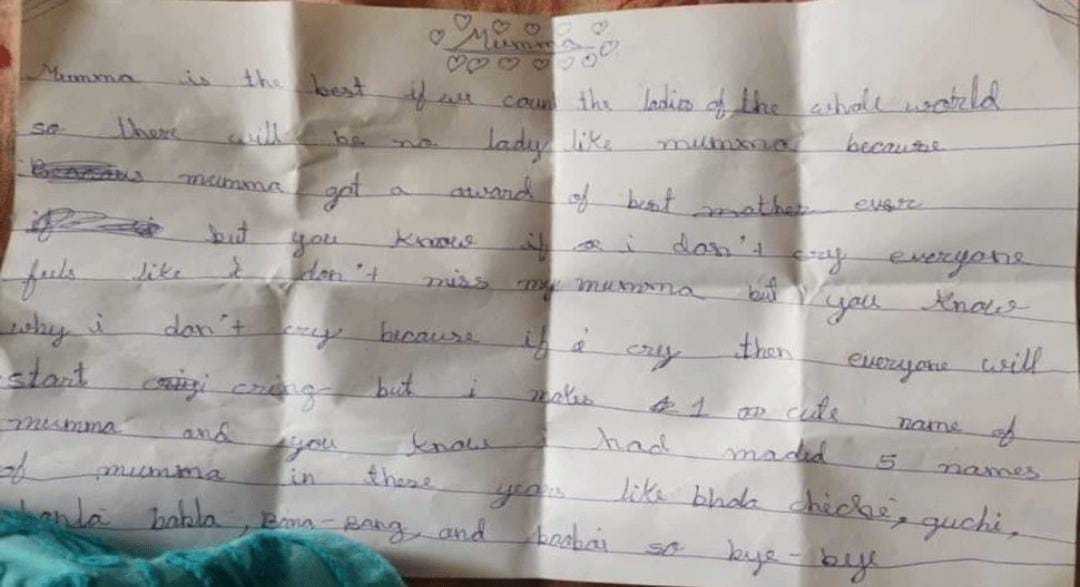 Mumma
Mumma is the best if we count the ladies of the whole world
so there will be no lady like mumma because
mumma got a award of best mother ever
if but you know if i don't cry everyone
feels like i don't miss my mumma but you know
why i don't cry because if i cry then everyone will
start cring but i makes 1 cute name of
mumma and you know i had maded 5 names
of mumma in these years like bhola chichi, guchi,
babla, Bang-Bang, and baabai so bye-bye